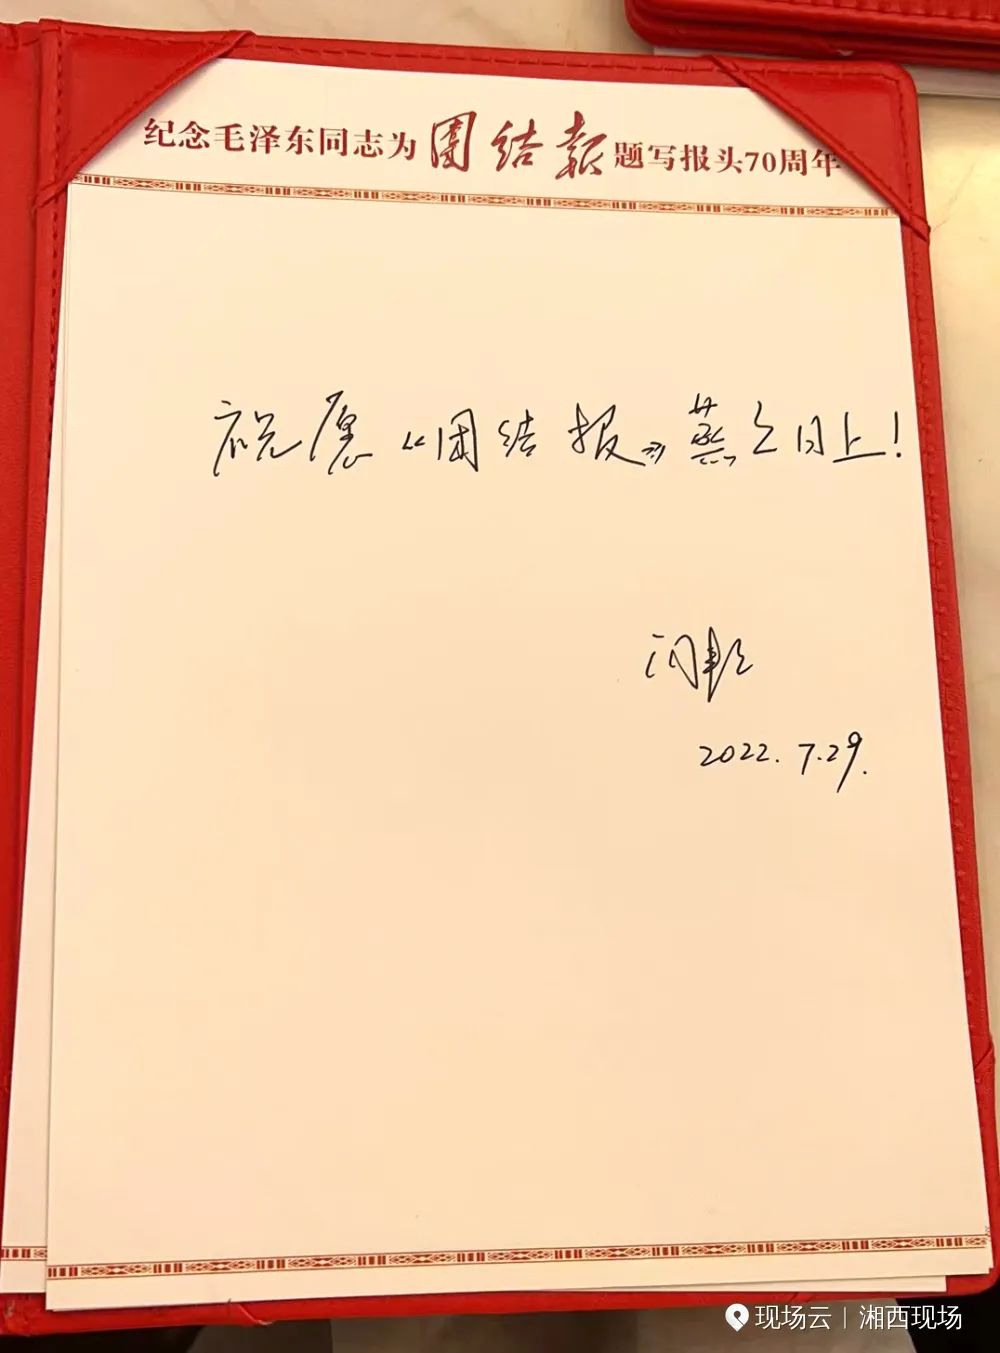 纪念毛泽东同志为團结報题写报头70周年
祝愿《团结报》蒸蒸日上!
2022.7.29.
现场云|湘西现场